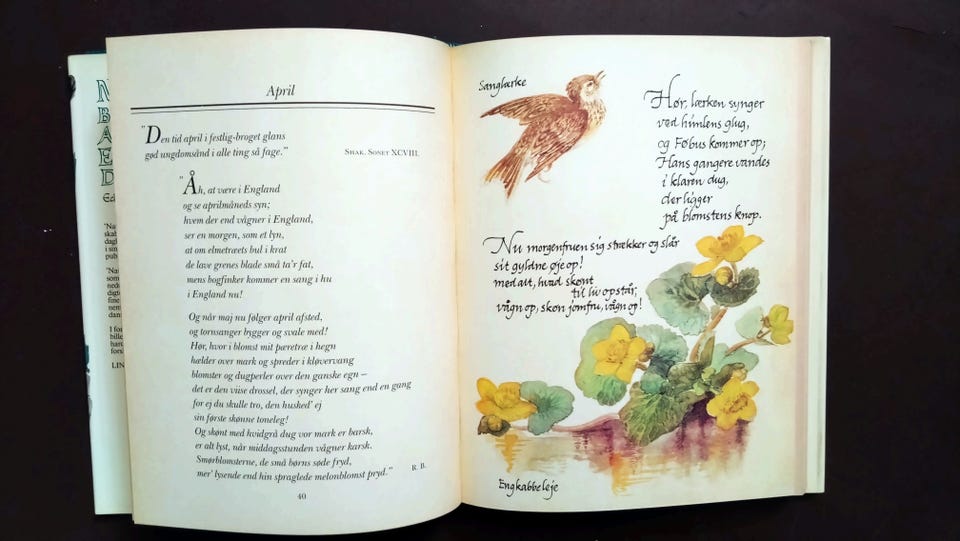 N
B
A
E
D
Ed
"Na
skab
dagl
i sin
pub
"Na
som
dad
digte
fine
nem
dan
I fo
bille
hard
fors
LIN
April
"Den tid april i festlig-broget glans
gød ungdomsånd i alle ting så fage."
SHAK. SONET XCVIII.
"Åh, at være i England
og se aprilmåneds syn;
hvem der end vågner i England,
ser en morgen, som et lyn,
at om elmetræets bul i krat
de lave grenes blade små ta'r fat,
mens bogfinker kommer en sang i hu
i England nu!
Og når maj nu følger april afsted,
og tornsanger bygger og svale med!
Hør, hvor i blomst mit pæretræ i hegn
hælder over mark og spreder i kløvervang
blomster og dugperler over den ganske egn –
det er den viise drossel, der synger her sang end en gang
for ej du skulle tro, den husked' ej
sin første skønne toneleg!
Og skønt med hvidgrå dug vor mark er barsk,
er alt lyst, når middagsstunden vågner karsk.
Smørblomsterne, de små børns søde fryd,
mer' lysende end hin spraglede melonblomst pryd."
R. B.
40
Sanglærke
Hør, lærken synger
ved himlens glug,
og Føbus kommer op;
Hans gangere vandes
i klaren dug,
der ligger
på blomstens knop.
Nu morgenfruen sig strækker og slår
sit gyldne øje op!
med alt, hvad skønt
til liv opstår,
vågn op, skøn jomfru, vågn op!
Engkabbeleje